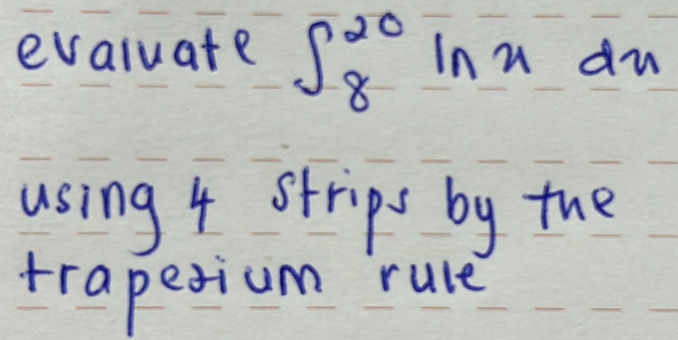 evaluate ∫₈²⁰ ln x dx
using 4 strips by the
trapezium rule